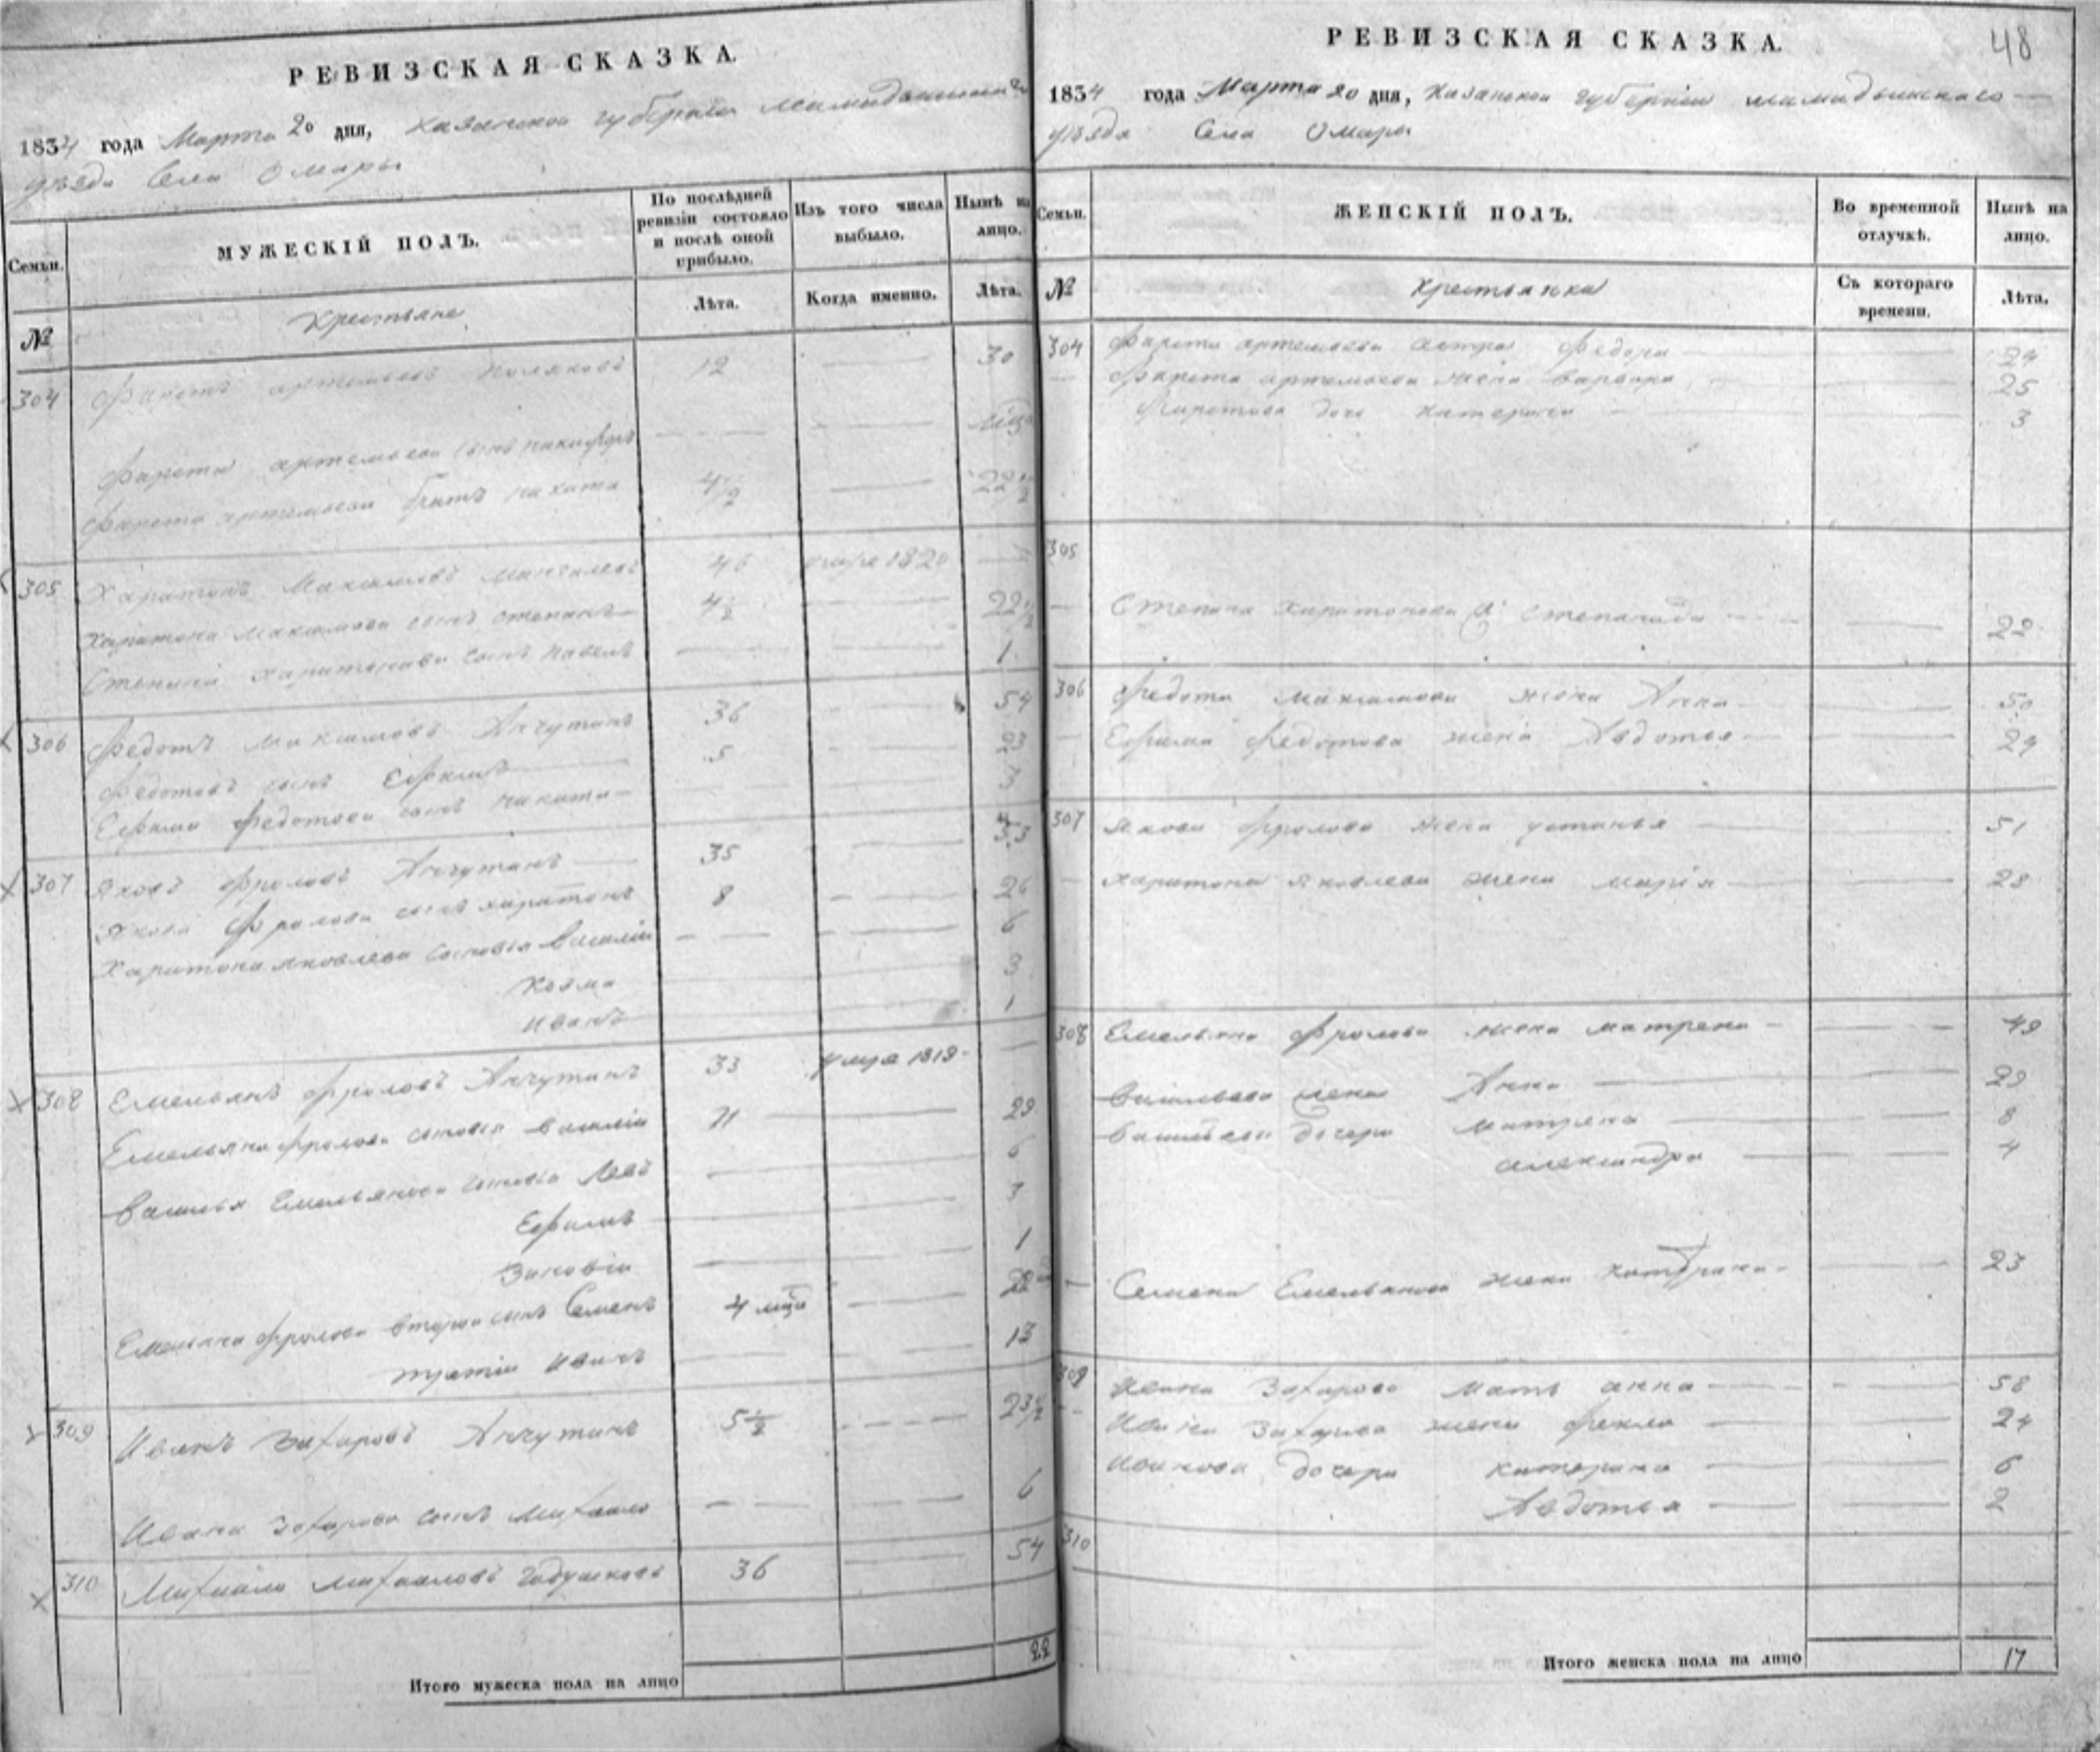 РЕВИЗСКАЯ СКАЗКА.
1834 года Марта 20 дня, Казанской губернии Мамадышскаго
уѣзда Села Омары
Семьи.
МУЖЕСКІЙ ПОЛЪ.
По послѣдней ревизіи состояло и послѣ оной прибыло.
Изъ того числа выбыло.
Нынѣ на лицо.
№
Крестьяне
Лѣта.
Когда именно.
Лѣта.
304 артемьевъ 12 30
артемьева сынъ никифоръ
артемьева братъ никита 4 1/2 22 1/2
305 Харитонъ Максимовъ 46 умре 1820
Харитона Максимова сынъ степанъ 4 1/2 22 1/2
Степана харитонова сынъ павелъ 1
306 Федотъ Максимовъ Анчутинъ 36 54
Федотовъ сынъ Ефимъ 5 23
Ефима федотова сынъ никита 3
307 Яковъ фроловъ Анчутинъ 35 53
Якова Фролова сынъ харитонъ 8 26
Харитона яковлева сыновья Василій 6
Козма 3
иванъ 1
308 Емельянъ фроловъ Анчутинъ 33 умре 1819
Емельяна фролова сыновья василій 11 29
Василья Емельянова сыновья Левъ 6
Ефимъ 3
Зиновій 1
Емельяна фролова второй сынъ Семенъ 4 мца 22
третій Иванъ 13
309 Иванъ Захаровъ Анчутинъ 5 1/2 23 1/2
Ивана захарова сынъ михайло 6
310 Михайло михайловъ 36 54
Итого мужеска пола на лицо 22
48
РЕВИЗСКАЯ СКАЗКА.
1834 года Марта 20 дня, Казанской губерніи мамадышскаго
уѣзда Села Омары
Семьи.
ЖЕНСКІЙ ПОЛЪ.
Во временной отлучкѣ.
Нынѣ на лицо.
№
Крестьянки
Съ котораго времени.
Лѣта.
304 артемьева сестра Федора 24
артемьева жена варвара 25
дочь катерина 3
305
Степана харитонова степанида 22
306 Федота максимова жена Анна 50
Ефима федотова жена Авдотья 24
307 Якова фролова жена устинья 51
харитона яковлева жена марія 28
308 Емельяна фролова жена матрена 49
васильева жена Анна 29
васильева дочери матрена 8
александра 4
Семена Емельянова жена 23
309 Ивана Захарова мать анна 58
Ивана Захарова жена фекла 24
Иванова дочери катерина 6
Авдотья 2
310
Итого женска пола на лицо 17